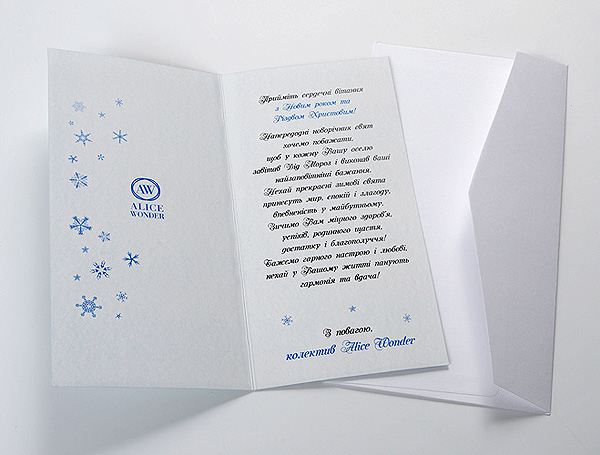 AW
ALICE
WONDER
Прийміть сердечні вітання
з Новим роком та
Різдвом Христовим!
Напередодні новорічних свят
хочемо побажати,
щоб у кожну Вашу оселю
завітав Дід Мороз і виконав ваші
найзаповітніші бажання.
Нехай прекрасні зимові свята
принесуть мир, спокій і злагоду,
впевненість у майбутньому.
Зичимо Вам міцного здоров'я,
успіхів, родинного щастя,
достатку і благополуччя!
Бажаємо гарного настрою і любові,
нехай у Вашому житті панують
гармонія та вдача!
З повагою,
колектив Alice Wonder